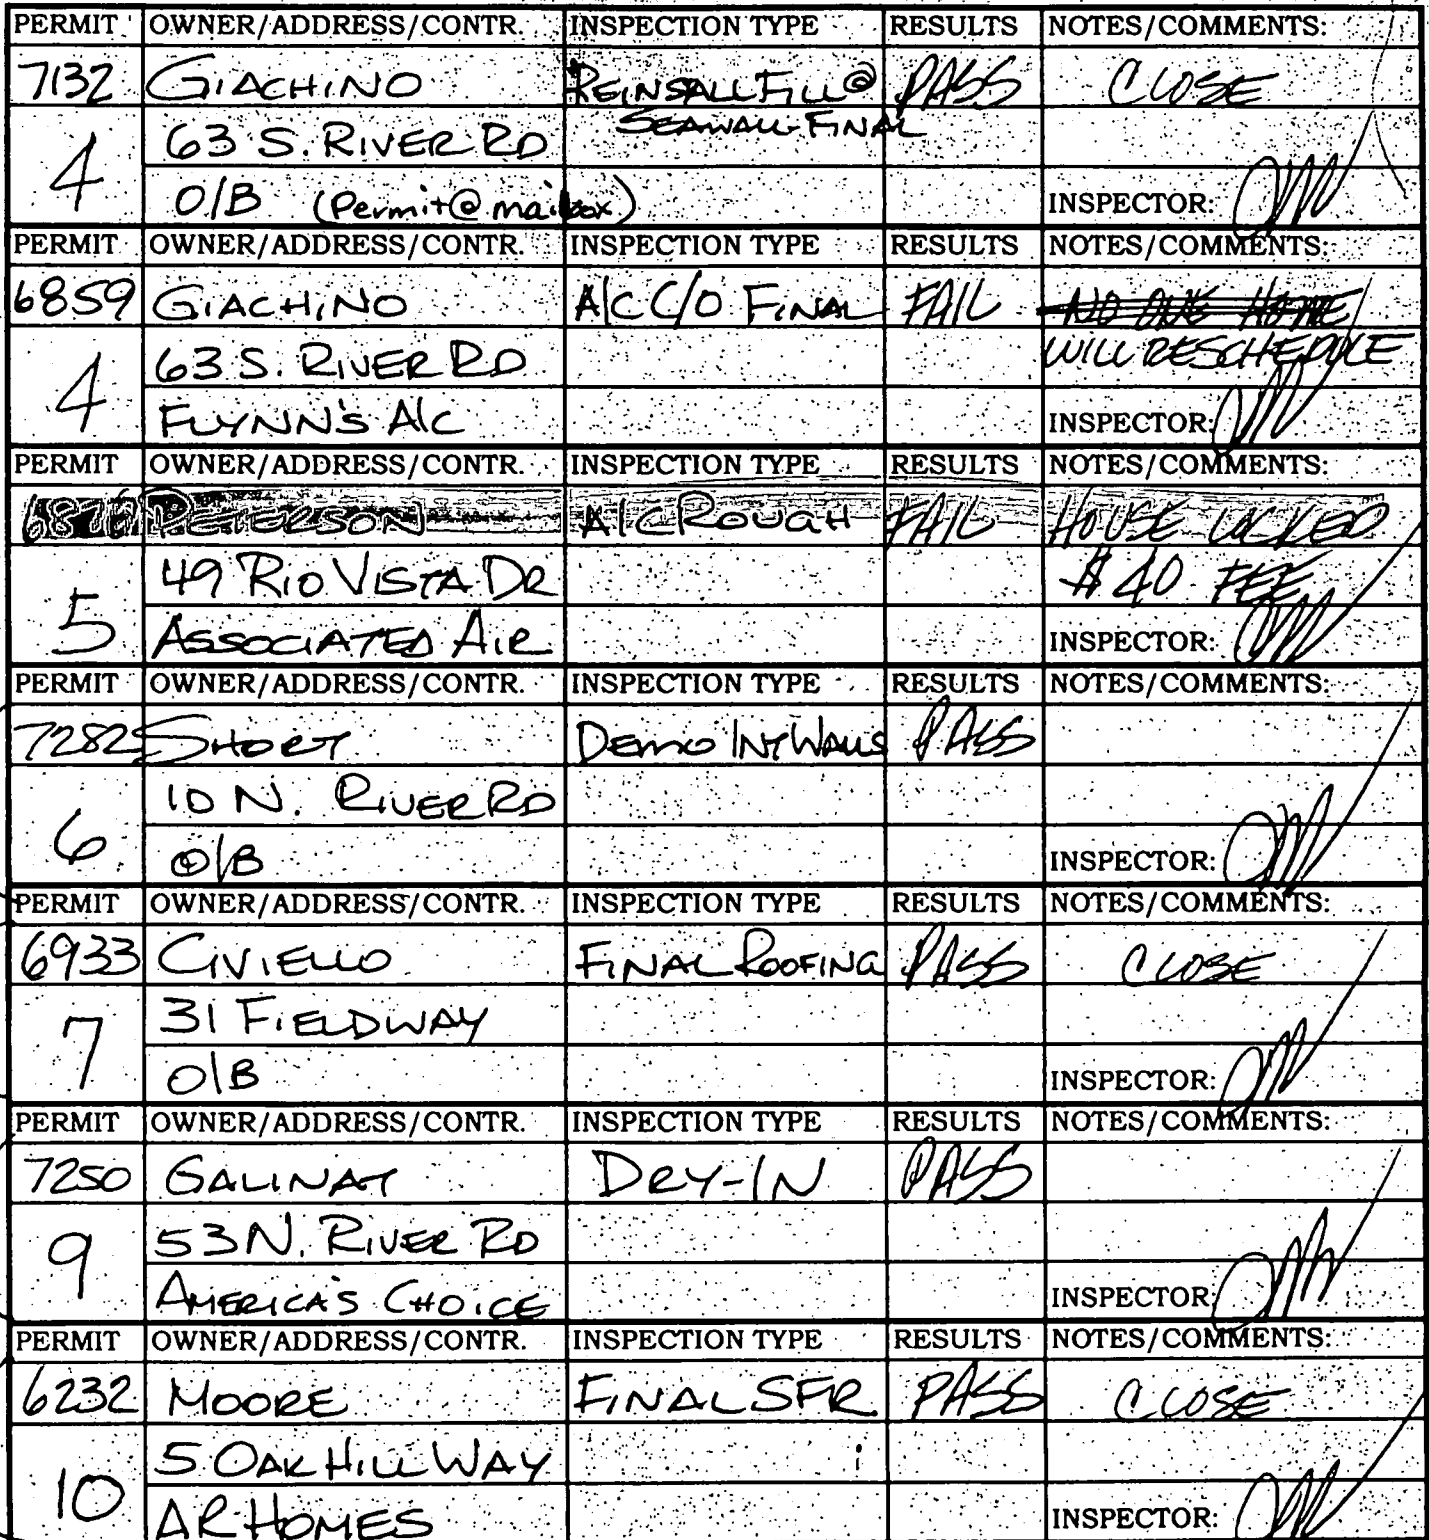 PERMIT OWNER/ADDRESS/CONTR. INSPECTION TYPE RESULTS NOTES/COMMENTS:
7132 GIACHINO REINSALL FILL @ PASS CLOSE
SEAWALL-FINAL
4 63 S. RIVER RD
O/B (Permit@mailbox) INSPECTOR:
PERMIT OWNER/ADDRESS/CONTR. INSPECTION TYPE RESULTS NOTES/COMMENTS:
6859 GIACHINO A/C C/O FINAL FAIL NO ONE HOME
4 63 S. RIVER RD WILL RESCHEDULE
FLYNN'S A/C INSPECTOR:
PERMIT OWNER/ADDRESS/CONTR. INSPECTION TYPE RESULTS NOTES/COMMENTS:
PETERSON A/C ROUGH FAIL HOUSE LOCKED
5 49 RIO VISTA DR $40 FEE
ASSOCIATED AIR INSPECTOR:
PERMIT OWNER/ADDRESS/CONTR. INSPECTION TYPE RESULTS NOTES/COMMENTS:
7282 SHORT DEMO INT WALLS PASS
6 10 N. RIVER RD
O/B INSPECTOR:
PERMIT OWNER/ADDRESS/CONTR. INSPECTION TYPE RESULTS NOTES/COMMENTS:
6933 CIVIELLO FINAL ROOFING PASS CLOSE
7 31 FIELDWAY
O/B INSPECTOR:
PERMIT OWNER/ADDRESS/CONTR. INSPECTION TYPE RESULTS NOTES/COMMENTS:
7250 GALINAT DRY-IN PASS
9 53 N. RIVER RD
AMERICA'S CHOICE INSPECTOR:
PERMIT OWNER/ADDRESS/CONTR. INSPECTION TYPE RESULTS NOTES/COMMENTS:
6232 MOORE FINAL SFR PASS CLOSE
10 5 OAK HILL WAY
AR HOMES INSPECTOR: